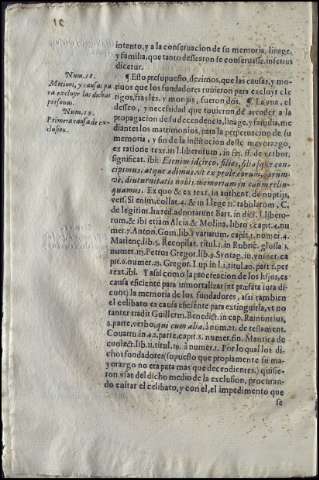 intento, y a la conseruacion de su memoria, linage,
y familia, que tanto dessearon se conseruasse, inferius
dicetur.
Num. 18.
Motiuos, y causas pa
ra excluyr las dichas
personas.
Num. 19.
Primera causa de ex-
clusion.
¶ Esto presupuesto, dezimos, que las causas, y mo-
tiuos que los fundadores tuuieron para excluyr cle-
rigos, frayles, y monjas, fueron dos. ¶ La vna, el de-
sseo, y necessidad que tuuieron de atender a la
propagacion de su decendencia, linage, y familia, me
diantes los matrimonios, para la perpetuacion de su
memoria, y fin de la institucion deste mayorazgo,
ex ratione text. in l. liberorum in fin. ff. de verbor.
significat. ibi: Etenim idcirco, filias, filiasque con-
cipimus, atque edimus, vt ex prole eorum, earum-
ve, diuturnitatis nobis memoriam in aeuum relin-
quamus. Ex quo & ex text. in authent. de nuptijs,
vers. Si enim, collat. 4. & in lege
C.
de legitim. haered. adnotarunt Bart. in dict. l. libero-
rum, & ibi etiam Alciat. & Molina, libro 1. capit. 4. nu-
mer. 7. Anton. Gom. lib. 1 variarum, capit. 1. numer.
Matienç. lib. 5. Recopilat. titul. 1. in Rubric. glossa 1.
numer. Petrus Gregor. lib. 9. Syntag. iu. vniuer. ca
pit. 6. numer. Gregor. Lup. in l. 2. titul. 20. part. 2. per
text. ibi. Y assi como la procreacion de los hijos, es
causa eficiente para immortalizar
la memoria de los fundadores, assi tambien
el celibato es causa eficiente para extinguirla, vt no
tanter tradit Guillerm. Benedict. in cap. Rainuntius,
2. parte, verbo qui cum alia, à num. de testament.
Couarru. in 4. 2. parte, capit. 3. fin. Mantica de
coniect. lib. 11. titul. 19. à numer. 1. Por lo qual los di-
chos fundadores (supuesto que propiamente su ma-
yorazgo no era para mas que decendientes) quisie-
ron vsar del dicho medio de la exclusion, procuran-
do euitar el celibato, y con el, el impedimento que
se